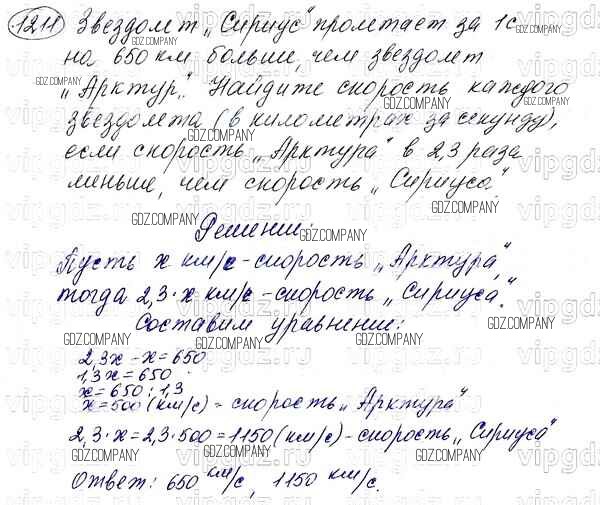 1211 Звездолёт „Сириус" пролетает за 1с
на 650 км больше, чем звездолет
„Арктур". Найдите скорость каждого
звездолета (в километрах за секунду),
если скорость „Арктура" в 2,3 раза
меньше, чем скорость „Сириуса".
Решение:
Пусть x км/с - скорость „Арктура",
тогда 2,3·x км/с - скорость „Сириуса".
Составим уравнение:
2,3x - x = 650
1,3x = 650
x = 650 : 1,3
x = 500 (км/с) - скорость „Арктура"
2,3·x = 2,3·500 = 1150 (км/с) - скорость „Сириуса"
Ответ: 650 км/с, 1150 км/с.
GDZ.COMPANY
vipgdz.ru